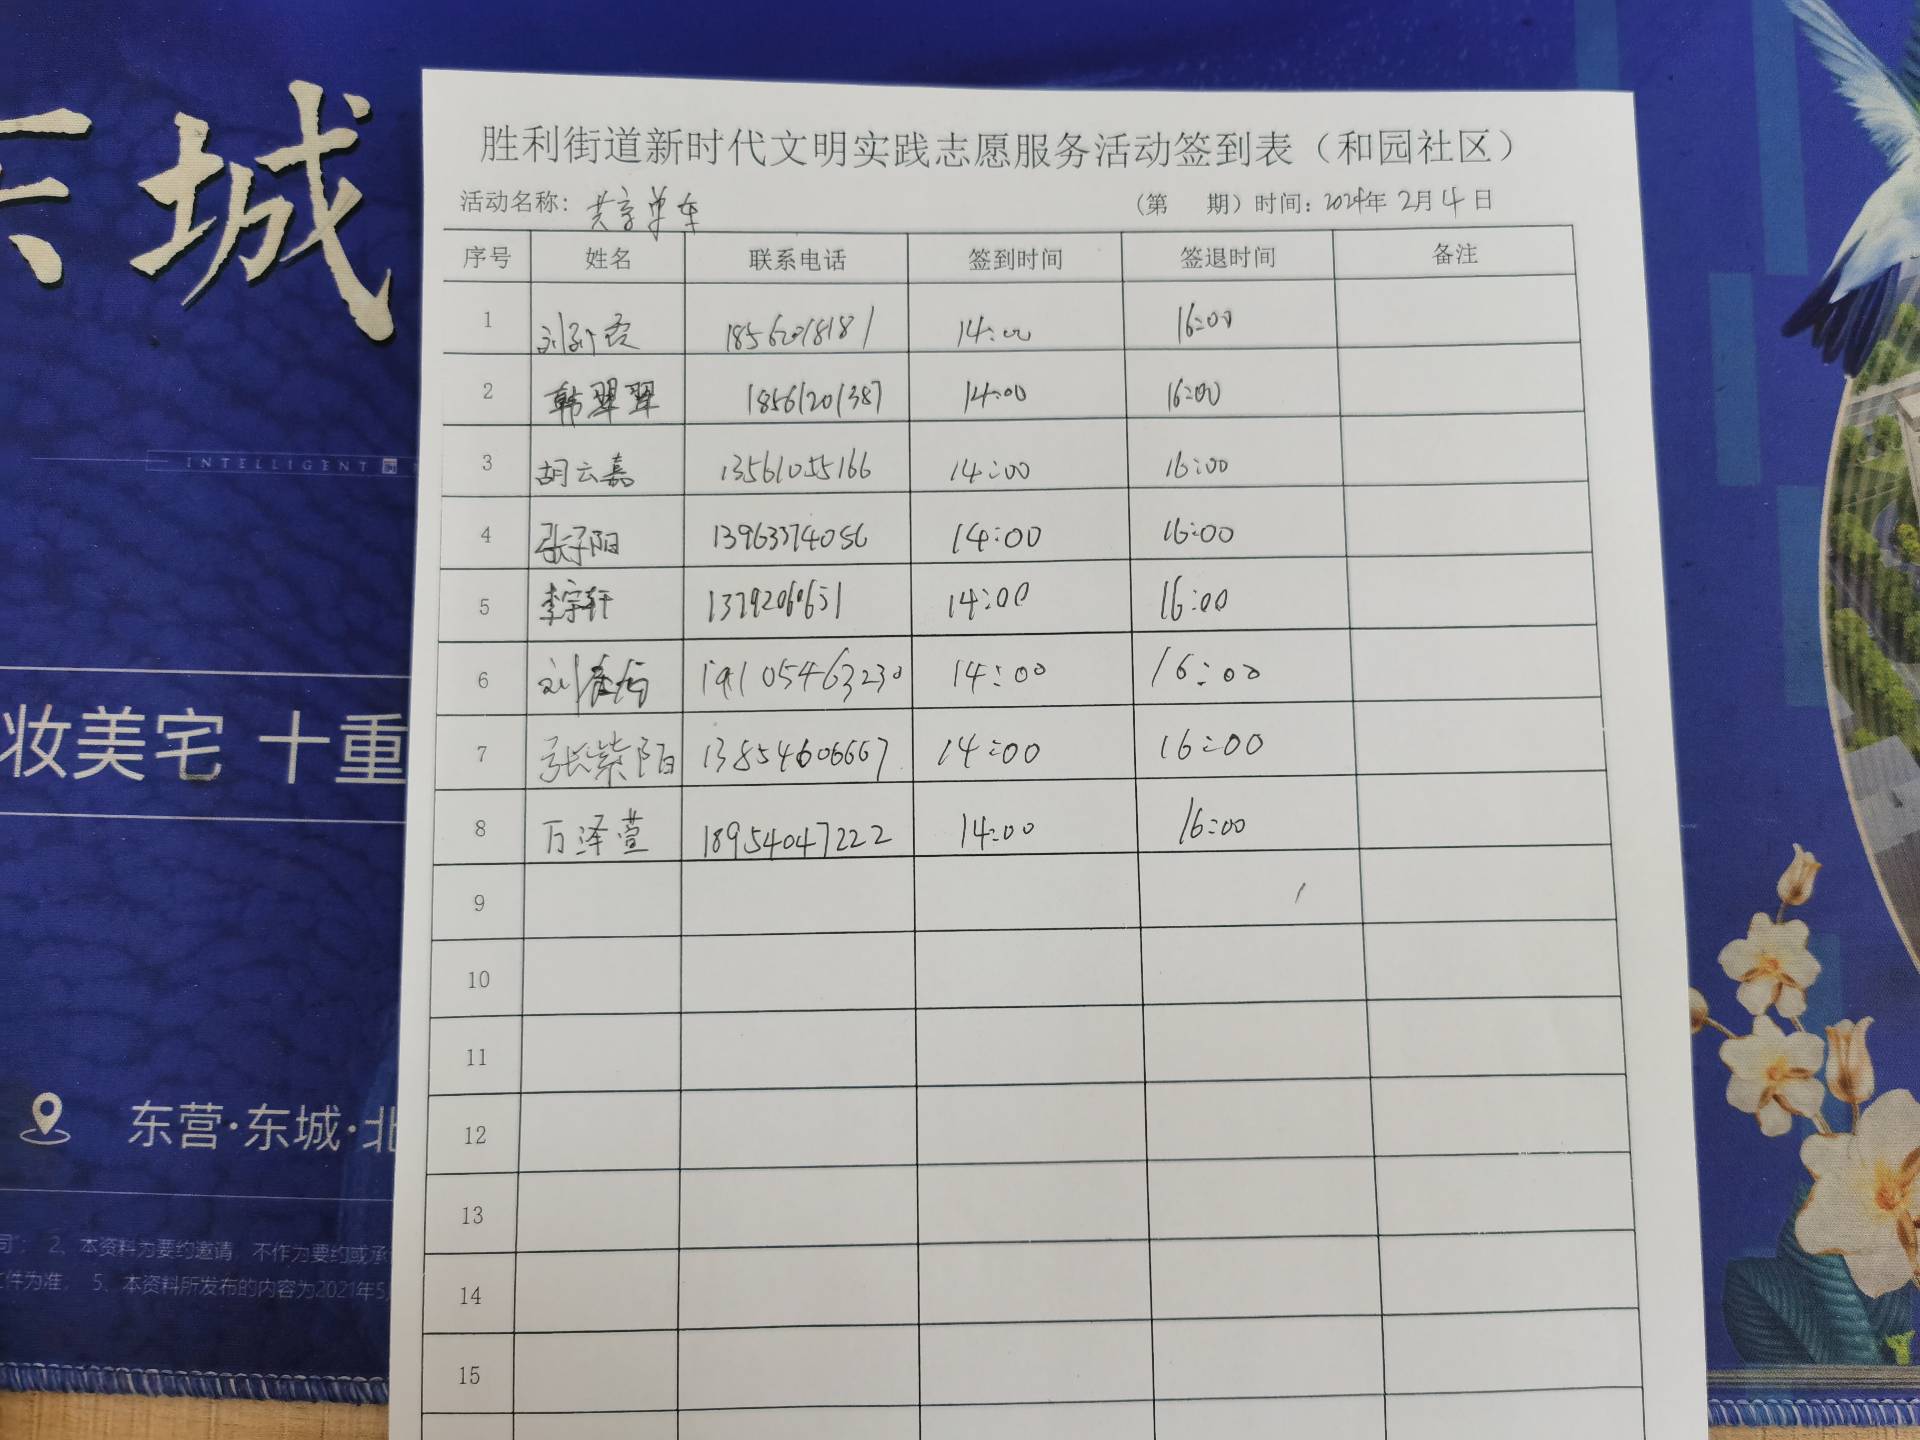 东城
INTELLIGENT
妆美宅 十重
东营·东城·北
2、本资料为要约邀请，不作为要约或承
件为准， 5、本资料所发布的内容为2021年5
胜利街道新时代文明实践志愿服务活动签到表（和园社区）
活动名称：共享单车 （第 期）时间：2024年2月4日
序号 姓名 联系电话 签到时间 签退时间 备注
1 14:00 16:00
2 韩翠翠 18561201387 14:00 16:00
3 胡云嘉 13561055166 14:00 16:00
4 张子阳 13963374056 14:00 16:00
5 李宗轩 14:00 16:00
6 19105463230 14:00 16:00
7 张紫陌 13854606667 14:00 16:00
8 万泽萱 18954047222 14:00 16:00
9
10
11
12
13
14
15